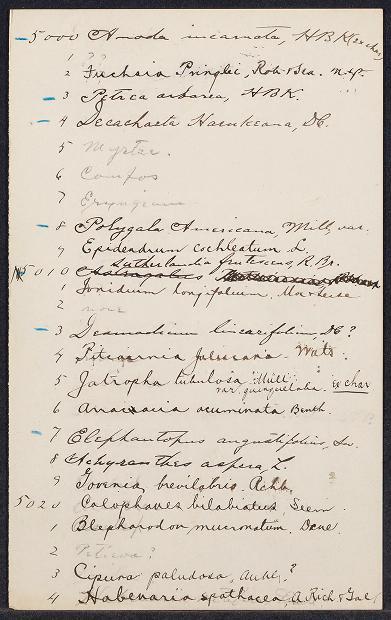 5000 Anoda incarnata, HBK (ex char)
1 ??
2 Fuchsia Pringlei, Rob & Sea. n. sp.
3 Petrea arborea, HBK.
4 Decachaeta Haenkeana, DC.
5 Myrtac.
6 Compos
7 Eryngium
8 Polygala Americana, Mill, var.
9 Epidendrum cochleatum L.
Sutherlandia frutescens, R. Br.
5010 Astragalus
1 Ionidium longifolium,
2
3 Desmodium linearifolium, DC?
4 Pitcairnia Wats.
5 Jatropha tubulosa Mull
var. quinqueloba. ex char
6 acuminata Benth.
7 Elephantopus angustifolius, Sw.
8 Achyranthes aspera, L.
9 Govenia brevilabris
5020 Calophanes bilabiatus Seem.
1 Blepharodon mucronatum. Dcne.
2
3 Cipura paludosa, Aubl.?
4 Habenaria spathacea, A. Rich & Gal